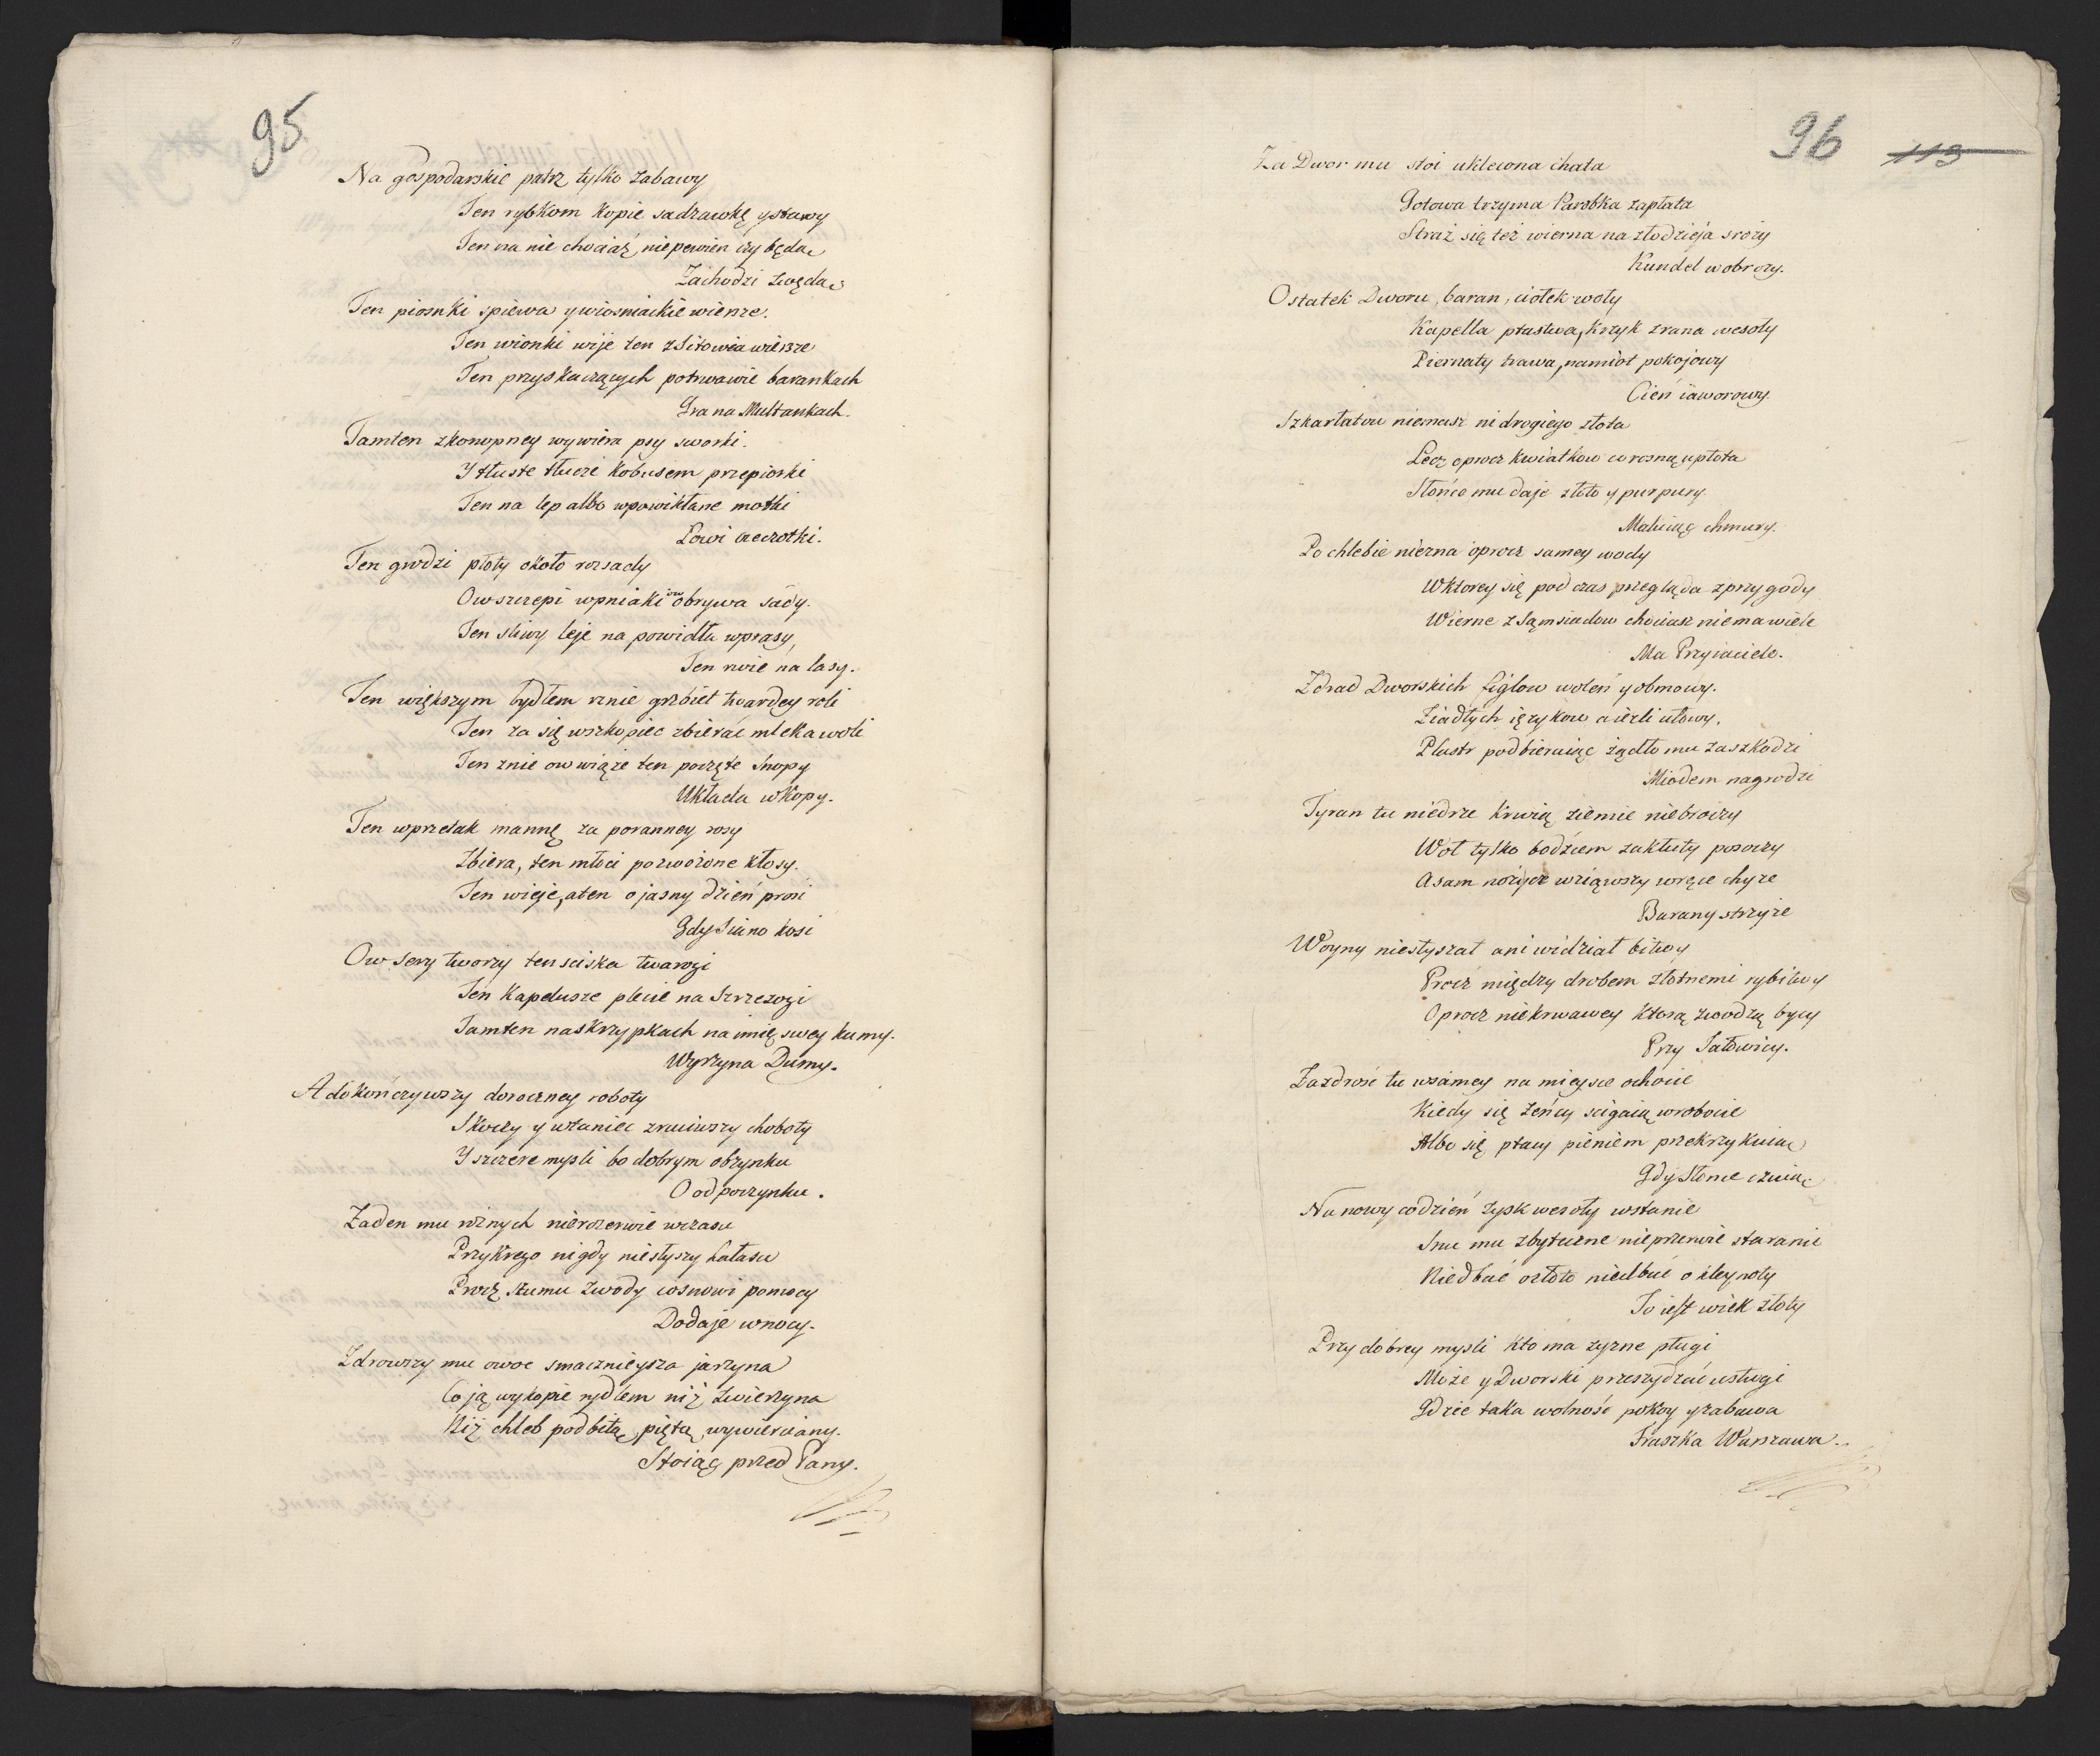 95
Na gospodarskie patrz tylko zabawy
Ten rybkom kopie sadzawkę y stawy
Ten na nie chociaż niepewien czy będą
Zachodzi z wędą
Ten piosnki spiewa y wiosniackie wiersze.
Ten wionki wije ten z Sitowia wiersze
Ten przyskaczących potrwawie barankach
Gra na Multankach.
Tamten z konopney wywiera psy sworki.
Y tłuste tłucze Kobusem przepiorki
Ten na lep albo w powikłane motki
Łowi czeczotki.
Ten grodzi płoty około rozsady
Ow szczepi w pniaki ow obrywa sady.
Ten sliwy leje na powidła w prasy,
Ten rwie na lasy.
Ten większym bydłem rznie grzbiet twardey roli
Ten za się w szkopiec zbierać mleka woli
Ten znie ow wiąże ten poczęte Snopy
Układa w Kopy.
Ten w przetak mannę za poranney rosy
Zbiera, ten młoci pozwożone kłosy.
Ten wieje, a ten o jasny dzień prosi
Gdy Siano kosi
Ow Sery tworzy ten sciska twarogi
Ten Kapelusze plecie na Szrzezogi
Tamten na skrzypkach na imię swey kumy.
Wyrzyna Dumy.
A dokończywszy doroczney roboty
Skoczy y w taniec zruciwszy choboty
Y szczere mysli bo dobrym obzynku
O odpoczynku.
Zaden mu roznych nierozerwie wczasu
Przykrego nigdy niesłyszy hałasu
Procz szumu z wody co snowi pomocy
Dodaje w nocy.
Zdrowszy mu owoc smacznieysza jarzyna
Co ją wykopie rydlem niż zwierzyna
Niż chleb podbitą piętą wywierciany.
Stoiąc przed Pany.
96 113
Za Dwor mu stoi uklecona chata
Gotowa trzyma Parobka zapłata
Straż się też wierna na złodzieja sroży
Kundel w obroży.
Ostatek Dworu, baran, ciołek woły
Kapella ptastwa, krzyk z rana wesoły
Piernaty trawa, namiot pokojowy
Cień iaworowy.
Szkarłatow niemasz ni drogiego złota
Lecz oprocz kwiatkow co rosną u płota
Słońce mu daje złoto y purpury.
Maluiąc chmury.
Po chlebie niezna oprocz samey wody
W ktorey się pod czas przegląda z przygody
Wierne z Sąmsiadow chociasz niema wiele
Ma Przyiaciele.
Zdrad Dworskich figlow woleń y obmowy.
Ziadłych ięzykow a iezli ułowy,
Plastr podbieraiąc żądło mu zaszkodzi
Miodem nagrodzi
Tyran tu niedrze krwią ziemie niebroczy
Woł tylko bodzcem zakłuty posoczy
A sam nożyce wziąwszy w ręce chyże
Barany strzyże
Woyny niesłyszał ani widział bitwy
Procz między drobem złotnemi rybitwy
Oprocz niekrwawey ktorą zwodzą bycy
Przy Jałowicy.
Zazdrosc tu w samey na mieysce ochocie
Kiedy się Zeńcy scigaią w robocie
Albo się ptacy pieniem przekrzykuią
Gdy Słonce czuią
Na nowy codzień zysk wesoły wstanie
Snu mu zbyteczne nieprzerwie staranie
Niedbać o złoto niedbać o kleynoty
To iest wiek złoty
Przy dobrey mysli kto ma zyzne pługi
Może y Dworski przeszydzać usługi
Gdzie taka wolność pokoy y zabawa
Fraszka Warszawa.